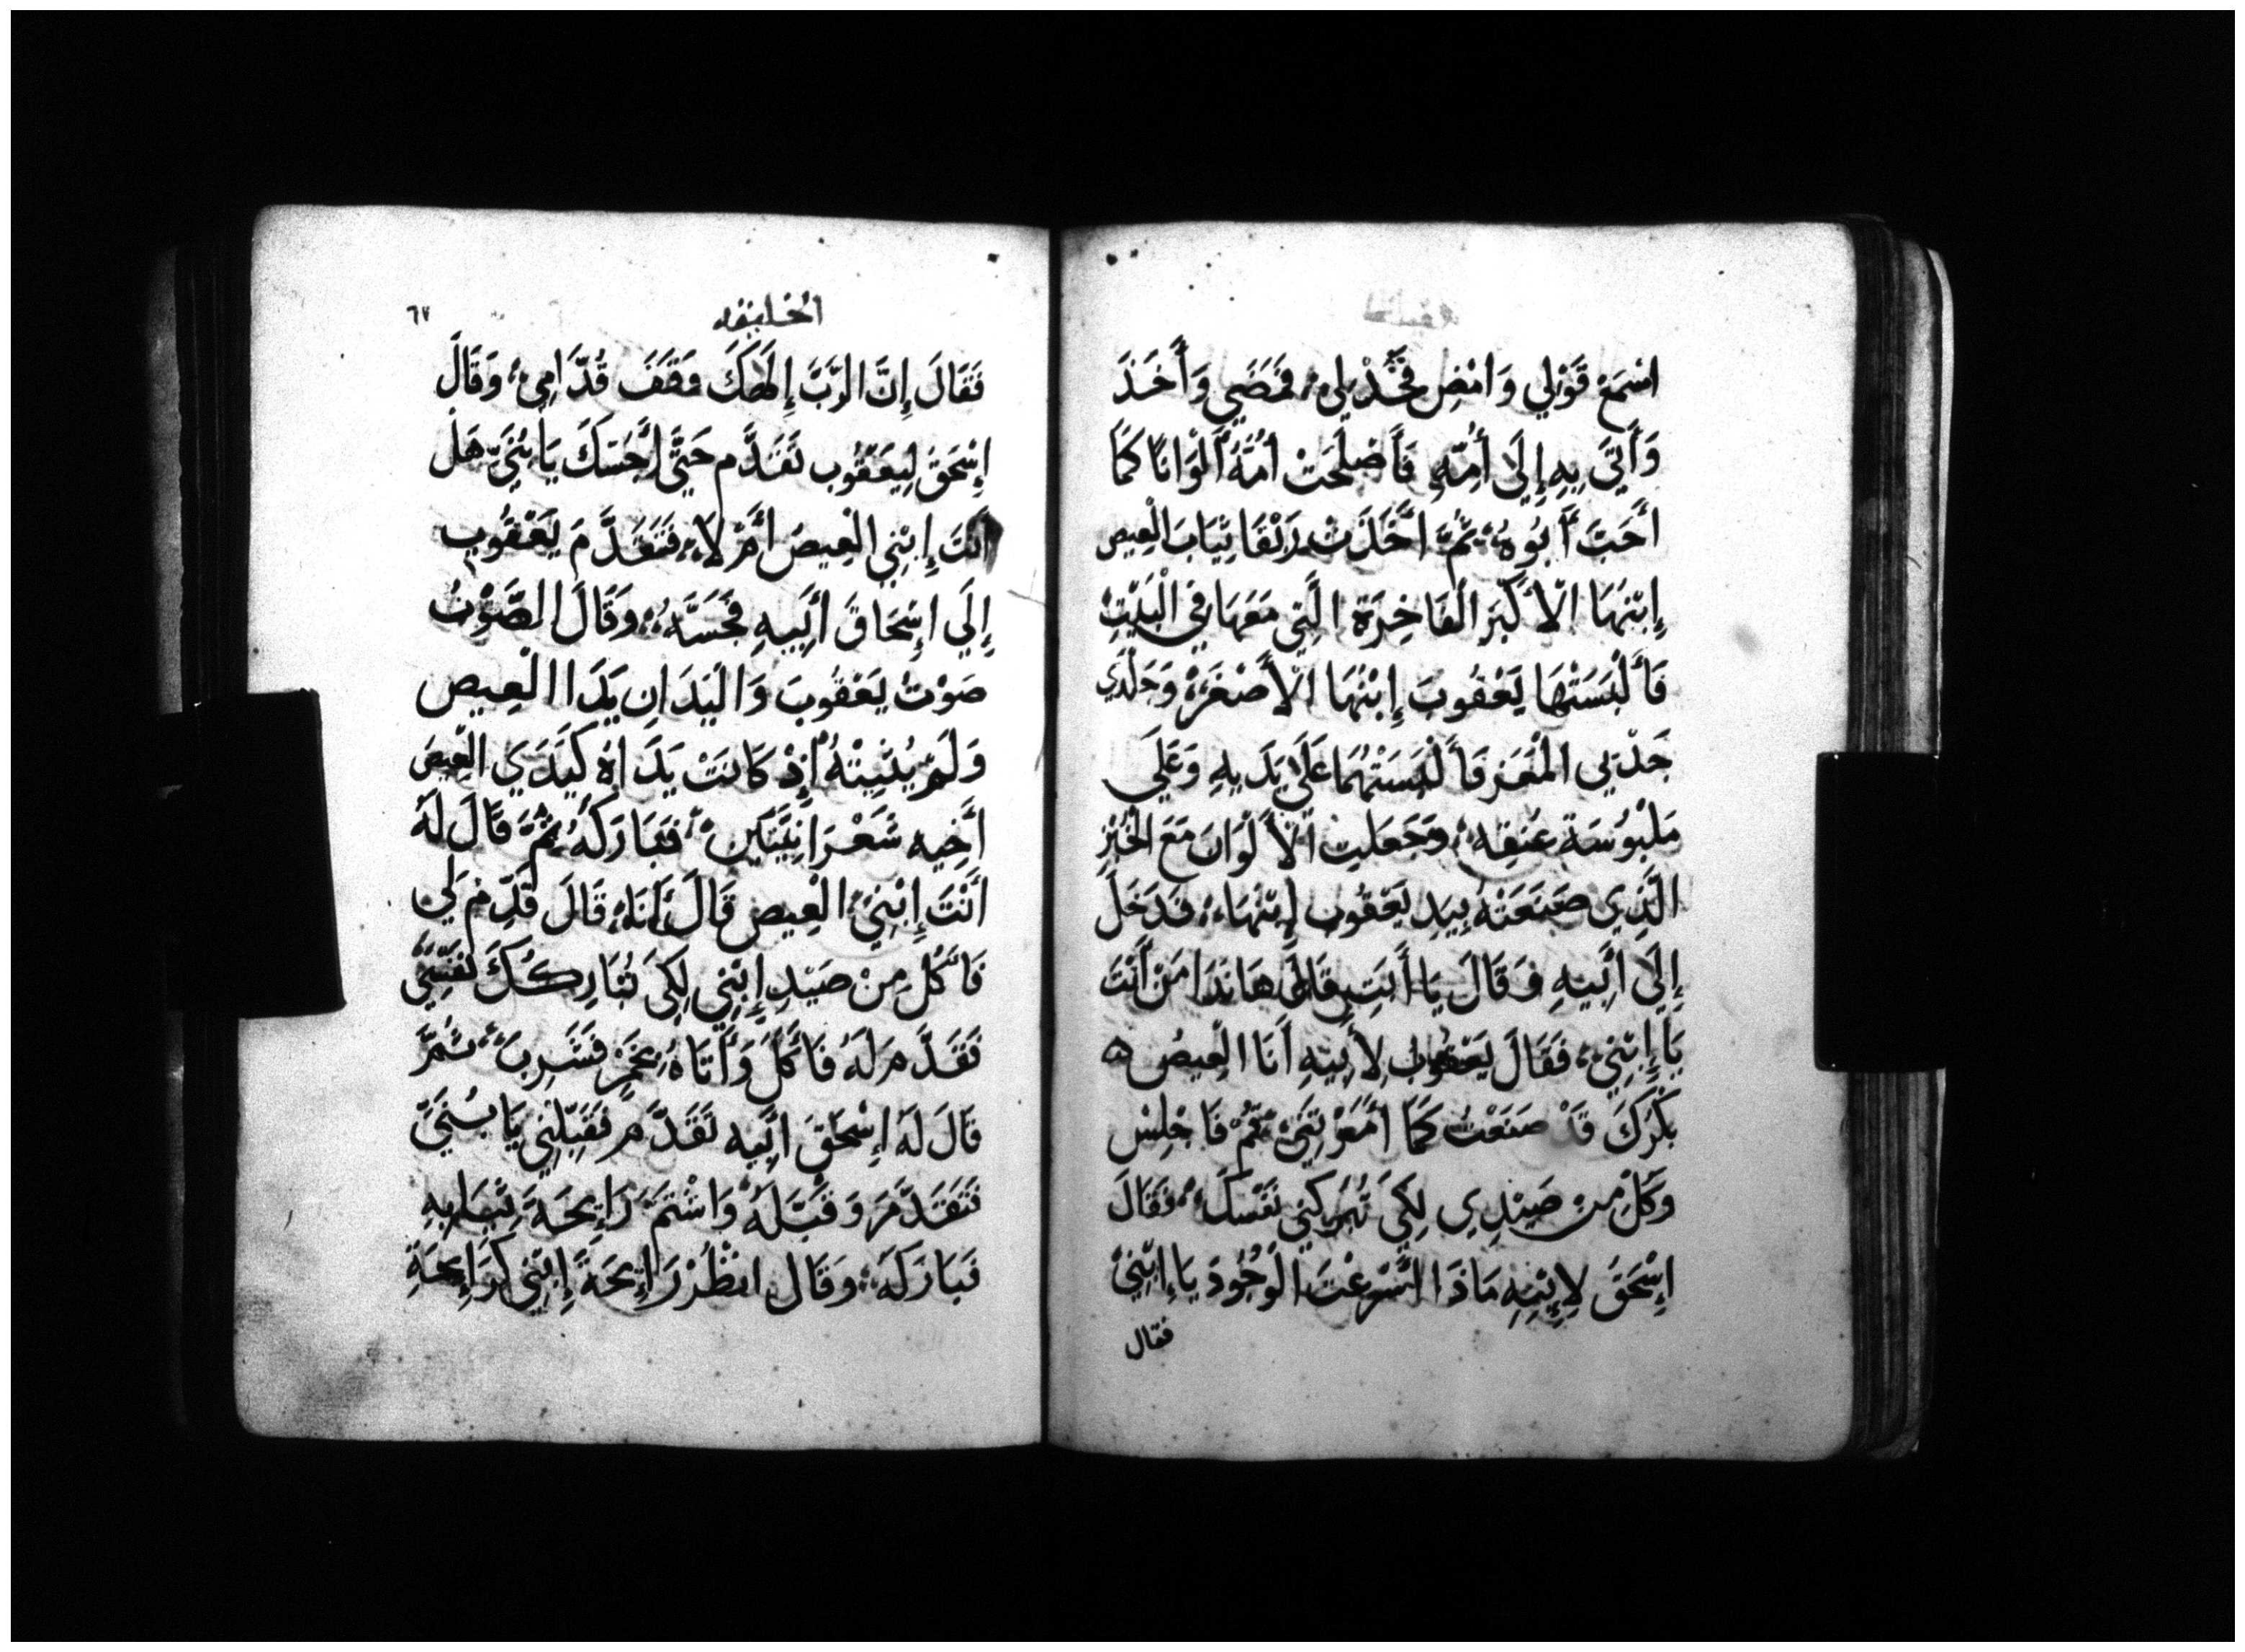 اسْمَعْ قَوْلِي وَامْضِ فَخُذْ لِي، فَمَضَي وَأَخَذَ
وَأَتَي بِهِ إِلَى أُمِّهِ فَأَصْلَحَتْ أُمُّهُ أَلْوَانًا كَمَا
أَحَبَّ أَبُوهُ، ثُمَّ أَخَذَتْ رَبْقَا ثِيَابَ الْعِيص
إِبْنَهَا الْأَكْبَرَ الْفَاخِرَةَ الَّتِي مَعَهَا فِي الْبَيْتِ
فَأَلْبَسَتْهَا يَعْقُوبَ إِبْنَهَا الْأَصْغَرَ، وَجِلْدَي
جَدْيَي الْمَعَز فَأَلْبَسَتْهُمَا عَلَى يَدَيهِ وَعَلَي
مَلْبُوسَة عُنقِه، وَجَعَلت الْأَلْوَانَ مَعَ الْخُبْزِ
الَّذِي صَنَعَتْهُ بِيَدِ يَعْقُوب إِبْنَهَا، فَدَخَلَ
إِلَى أَبِيهِ وَقَالَ يَا أَبَتِ قَالَ هَا نَذَا مَنْ أَنْتَ
يَا إِبْنِي، فَقَالَ يَعْقُوبُ لِأَبِيهِ أَنَا الْعِيصُ
بِكْرَكَ قَدْ صَنَعْتُ كَمَا أَمَرْتَنِي قُمْ فَاجْلِسْ
وَكُلْ مِنْ صَيْدِي لِكَي تُبَرِكَنِي نَفْسَكَ، فَقَالَ
إِسْحَقَ لِإِبْنِهِ مَاذَا أَسْرَعْتَ الْوُجُودَ يَا إِبْنِي
فقال
الخليقه
٦٧
فَقَالَ إِنَّ الرَّبَّ إِلَهَكَ وَقَفَ قُدَّامِي، وَقَالَ
إِسْحَقُ لِيَعْقُوب تَقَدَّم حَتَّى أَجُسَّكَ يَا بُنَيَّ هَلْ
أَنْتَ إِبْنِي الْعِيصُ أَمْ لَا، فَتَقَدَّمَ يَعْقُوب
إِلَي إِسْحَاقَ أَبِيهِ فَجَسَّهُ، وَقَالَ الصَّوْتُ
صَوْتُ يَعْقُوبَ وَالْيَدَانِ يَدَا الْعِيص
وَلَمْ يُثْبِتْهُ إِذْ كَانَتْ يَدَاهُ كَيَدَي الْعِيصَ
أَخِيه شَعْرَانِيَّتَيْنِ، فَبَارَكَهُ ثُمَّ قَالَ لَهُ
أَنْتَ إِبْنِي الْعِيص قَالَ أَنَا، قَالَ قَدِّمْ لِي
فَآكُل مِنْ صَيْدِ إِبْنِي لِكَي تُبَارِكُكَ نَفْسِي
فَقَدَّم لَهُ فَأَكَلَ وَأَتَاهُ بِخَمْرٍ فَشَرِبَ، ثُمَّ
قَالَ لَهُ إِسْحَقَ أَبِيه تَقَدَّم فَقَبِّلْنِي يَا بُنَيَّ
فَتَقَدَّمَ وَقَبَّلَهُ وَاشْتَمَّ رَائِحَةَ ثِيَابِهِ
فَبَارَكَهُ، وَقَال انْظُرْ رَائِحَةَ إِبْنِي كَرَائِحَةِ